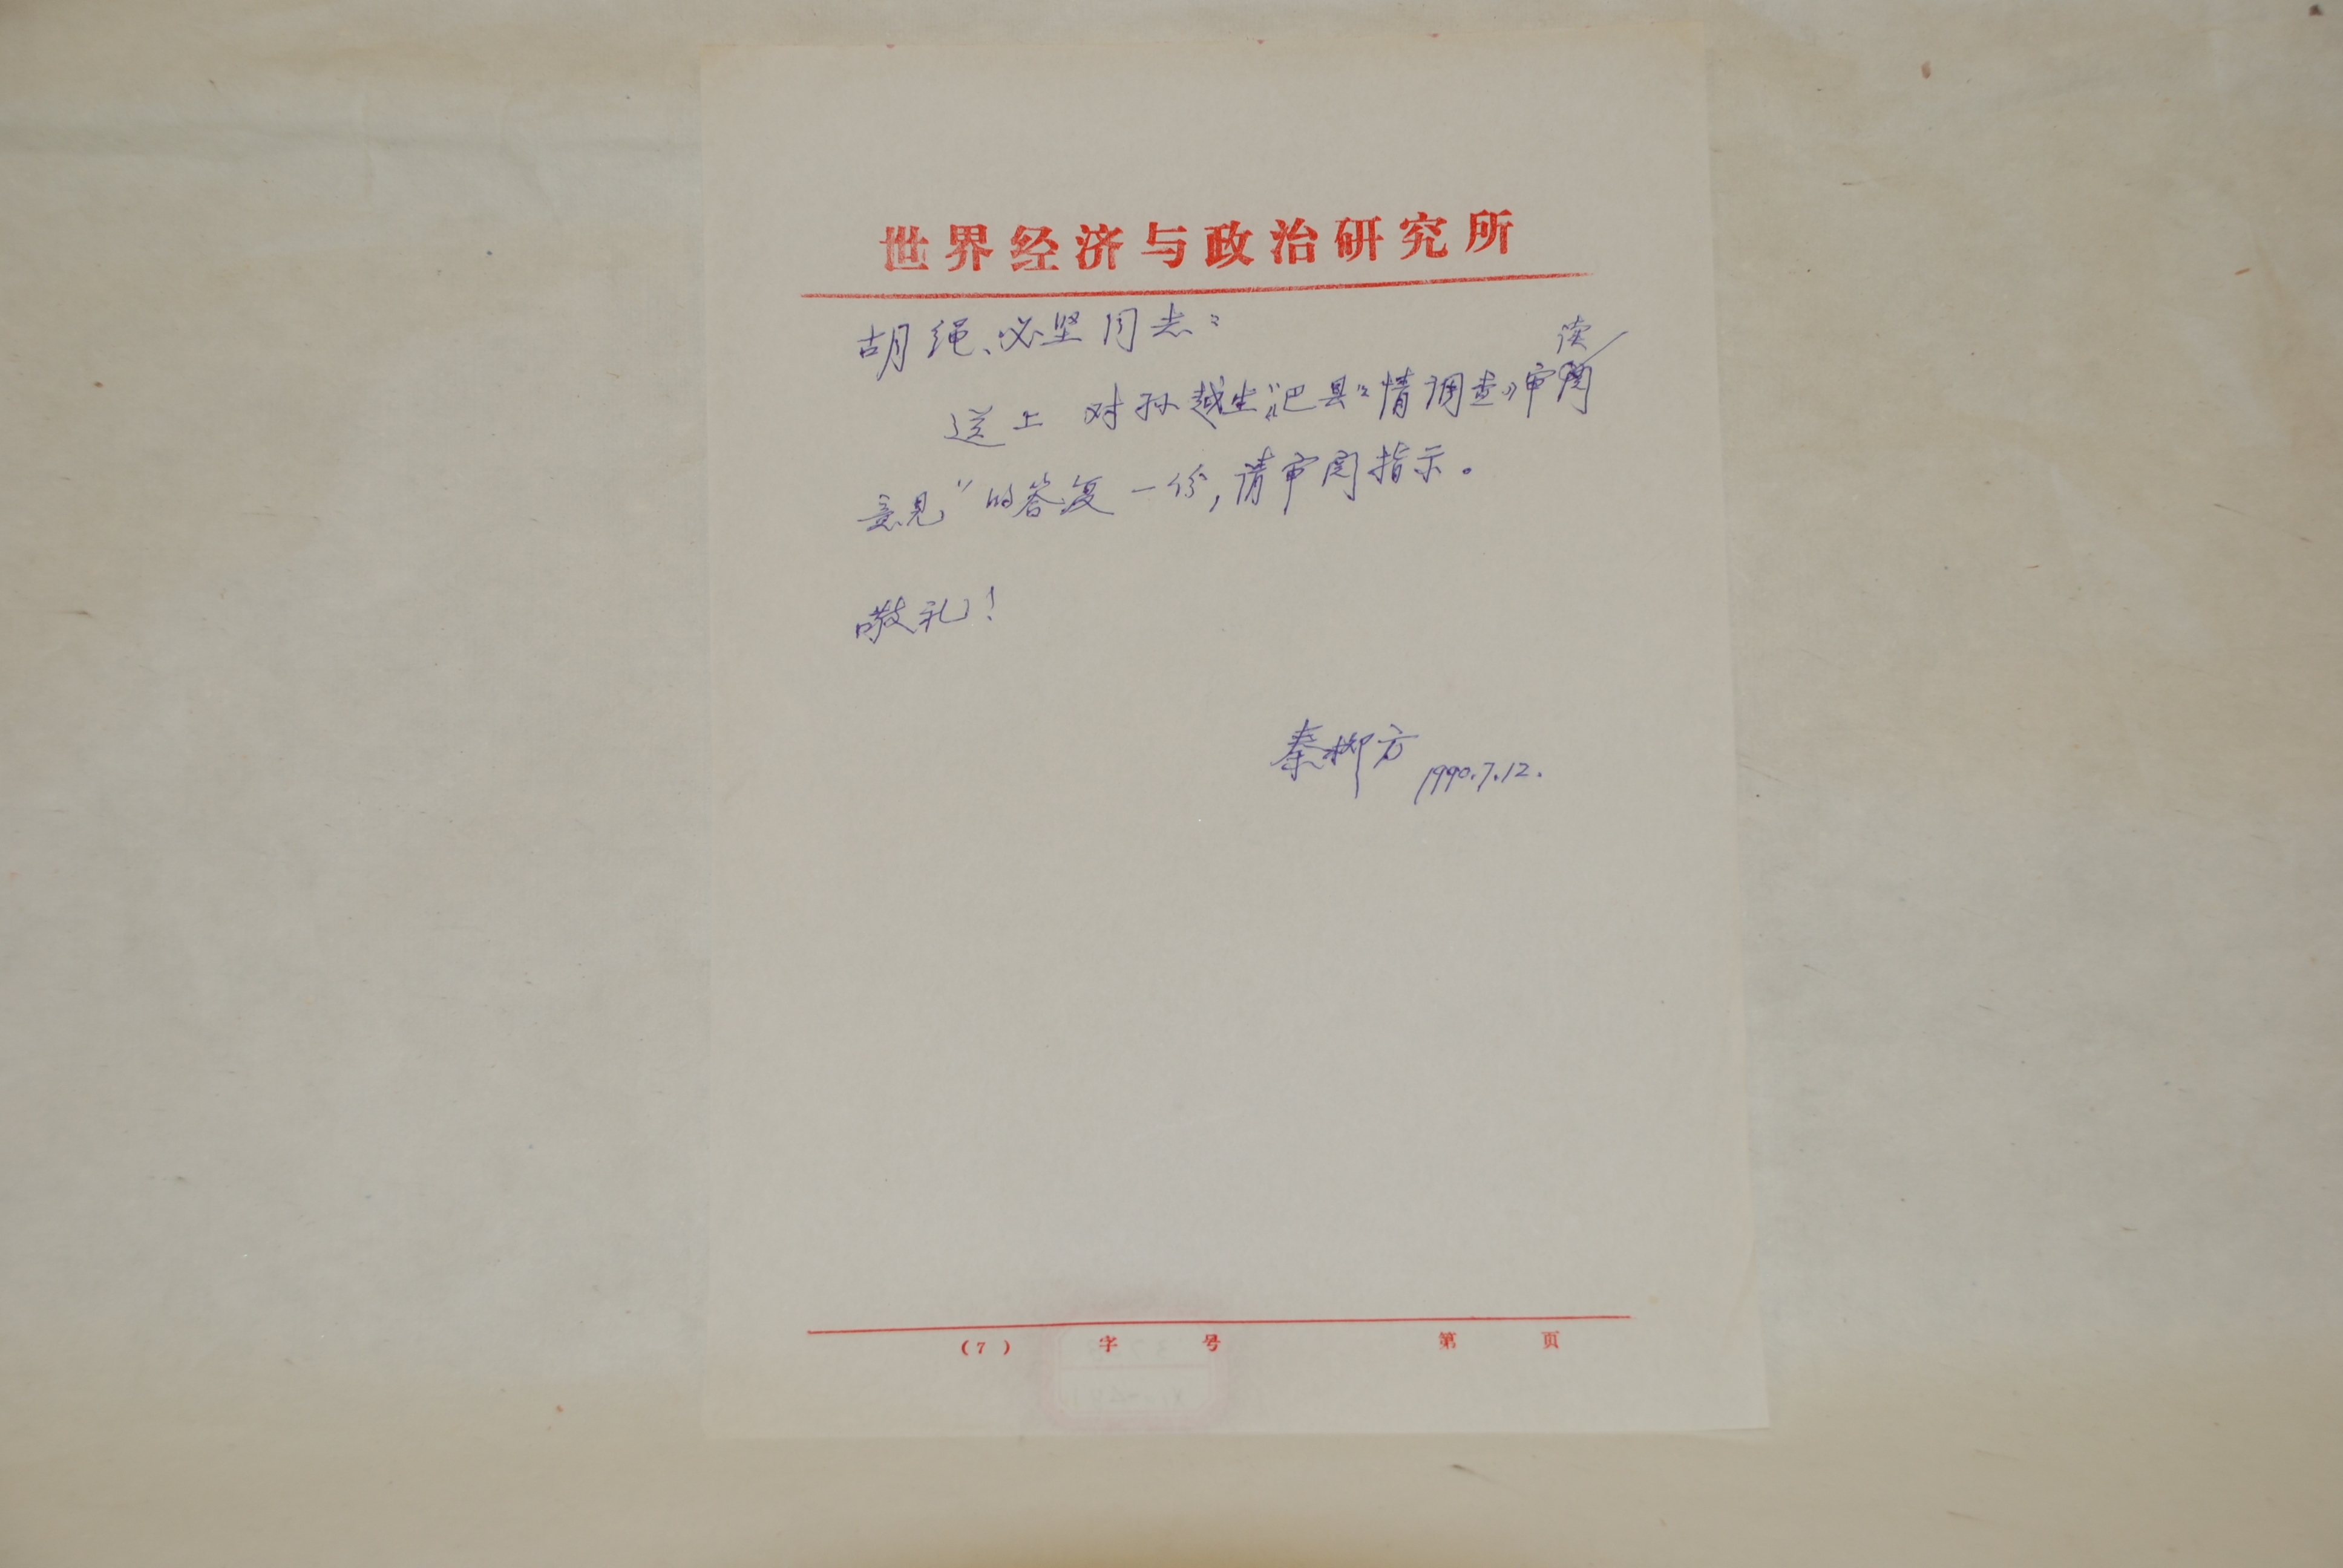 世界经济与政治研究所
胡绳、必坚同志:
读
送上 对孙越生“《巴县〻情调查》审阅
意见”的答复一份,请审阅指示。
敬礼!
秦柳方 1990.7.12.
(7) 字 号 第 页